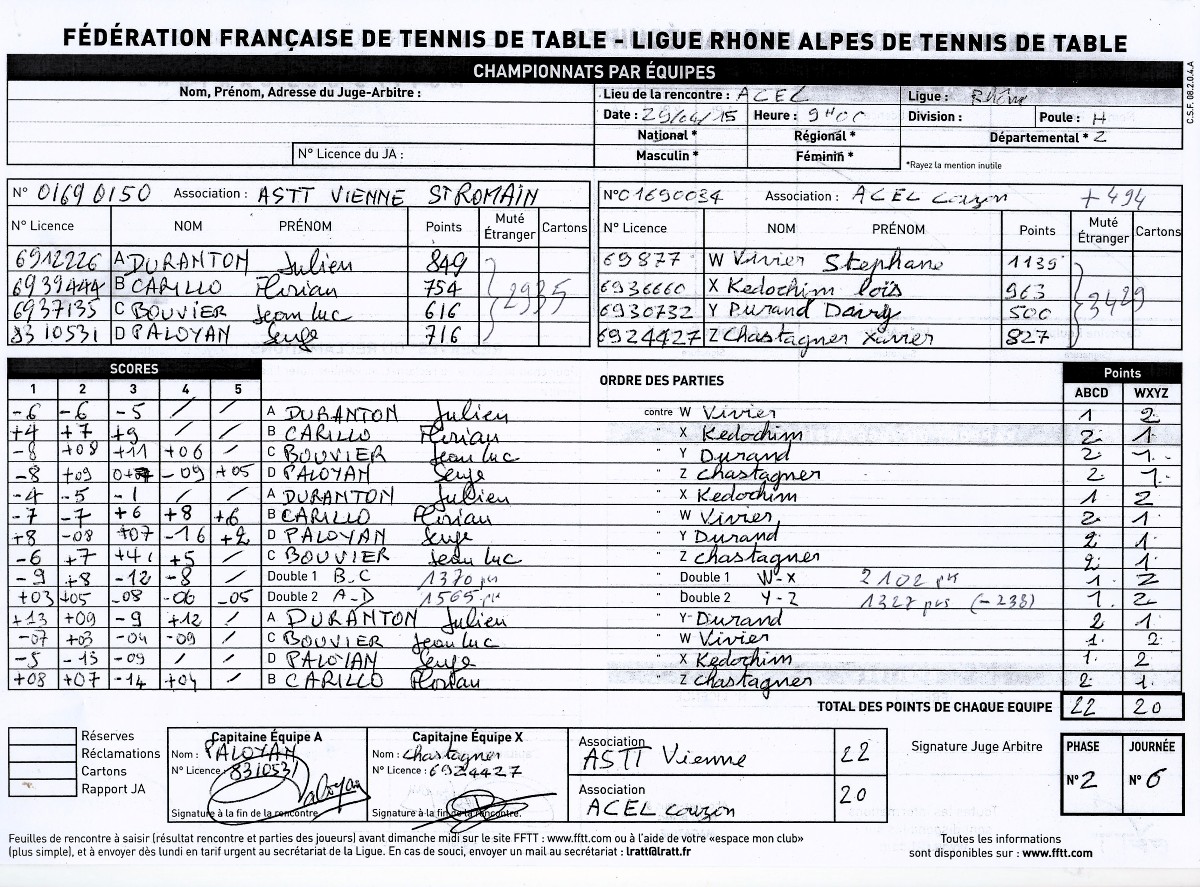 FÉDÉRATION FRANÇAISE DE TENNIS DE TABLE - LIGUE RHONE ALPES DE TENNIS DE TABLE
CHAMPIONNATS PAR ÉQUIPES
C.S.F. 08.2.0.4.A
Nom, Prénom, Adresse du Juge-Arbitre :
N° Licence du JA :
Lieu de la rencontre : ACEL
Ligue : Rhône
Date : 29/04/15 Heure : 9H00
Division : Poule : H
National * Régional * Départemental * 2
Masculin * Féminin *
*Rayez la mention inutile
N° 01690150 Association : ASTT VIENNE ST ROMAIN
N° Licence NOM PRÉNOM Points Muté Étranger Cartons
6912226 A DURANTON Julien 849
6939444 B CARILLO Florian 754
6937135 C BOUVIER Jean luc 616
8310531 D PALOYAN Serge 716
2935
N° 01690034 Association : ACEL couzon +494
N° Licence NOM PRÉNOM Points Muté Étranger Cartons
69877 W Vivier Stephane 1139
6936660 X Kedochim loïs 963
6930732 Y Durand Davry 500
6924427 Z Chastagner Xavier 827
3429
SCORES ORDRE DES PARTIES Points
1 2 3 4 5 ABCD WXYZ
-6 -6 -5 / / A DURANTON Julien contre W Vivier 1 2
+4 +7 +9 / / B CARILLO Florian " X Kedochim 2 1
-8 +08 +11 +06 / C BOUVIER Jean luc " Y Durand 2 1
-8 +09 -09 +05 D PALOYAN Serge " Z Chastagner 2 1
-4 -5 -1 / / A DURANTON Julien " X Kedochim 1 2
-7 -7 +6 +8 +6 B CARILLO Florian " W Vivier 2 1
+8 -08 +07 -16 +2 D PALOYAN Serge " Y Durand 2 1
-6 +7 +5 / C BOUVIER Jean luc " Z Chastagner 2 1
-9 +8 -12 -8 / Double 1 B-C 1370 pts " Double 1 W-X 2102 pts 1 2
+03 +05 -08 -06 -05 Double 2 A-D 1565 pts " Double 2 Y-Z 1327 pts (-238) 1 2
+13 +09 -9 +12 / A DURANTON Julien " Y Durand 2 1
-07 +03 -04 -09 / C BOUVIER Jean luc " W Vivier 1 2
-5 -13 -09 / / D PALOYAN Serge " X Kedochim 1 2
+08 +07 -14 +04 / B CARILLO Florian " Z Chastagner 2 1
TOTAL DES POINTS DE CHAQUE EQUIPE 22 20
Réserves
Réclamations
Cartons
Rapport JA
Capitaine Équipe A
Nom : PALOYAN
N° Licence : 8310531
Signature à la fin de la rencontre
Capitaine Équipe X
Nom : Chastagner
N° Licence : 6924427
Signature à la fin de la rencontre.
Association ASTT Vienne 22
Association ACEL couzon 20
Signature Juge Arbitre
PHASE JOURNÉE
N° 2 N° 6
Feuilles de rencontre à saisir (résultat rencontre et parties des joueurs) avant dimanche midi sur le site FFTT : www.fftt.com ou à l'aide de votre «espace mon club»
(plus simple), et à envoyer dès lundi en tarif urgent au secrétariat de la Ligue. En cas de souci, envoyer un mail au secrétariat : lratt@lratt.fr
Toutes les informations
sont disponibles sur : www.fftt.com